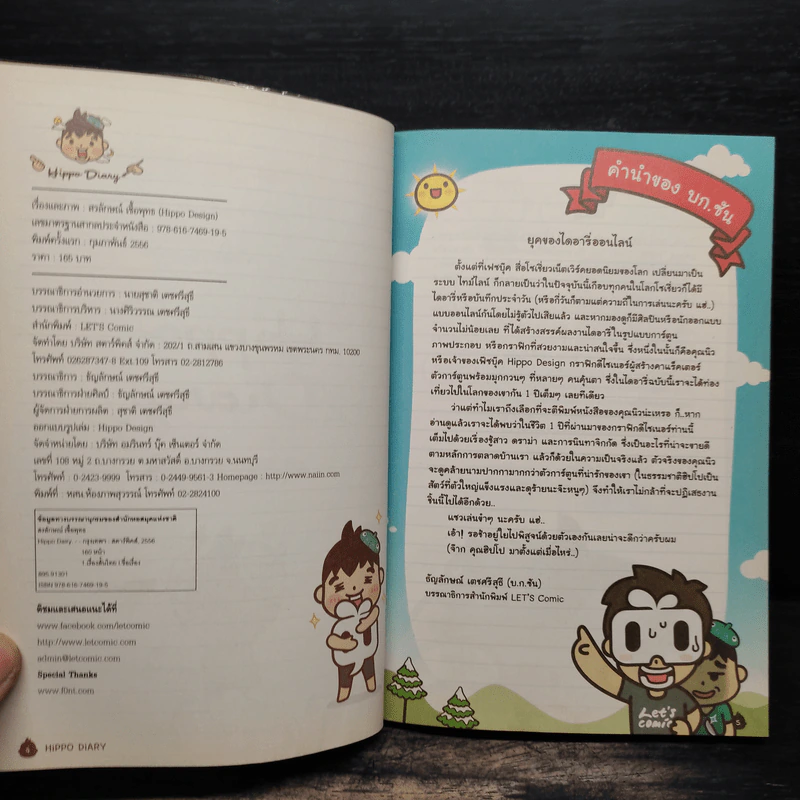 Hippo Diary
เรื่องและภาพ : ศรลักษณ์ เชื้อพุทธ (Hippo Design)
เลขมาตรฐานสากลประจำหนังสือ : 978-616-7469-19-5
พิมพ์ครั้งแรก : กุมภาพันธ์ 2556
ราคา : 165 บาท
บรรณาธิการอำนวยการ : นายสุชาติ เตชศรีสุธี
บรรณาธิการบริหาร : นางศิริวรรณ เตชศรีสุธี
สำนักพิมพ์ : LET'S Comic
จัดทำโดย บริษัท สตาร์พิคส์ จำกัด : 202/1 ถ.สามเสน แขวงบางขุนพรหม เขตพระนคร กทม. 10200
โทรศัพท์ 026287347-8 Ext.109 โทรสาร 02-2812786
บรรณาธิการ : ธัญลักษณ์ เตชศรีสุธี
บรรณาธิการฝ่ายศิลป์ : ธัญลักษณ์ เตชศรีสุธี
ผู้จัดการฝ่ายการผลิต : สุชาติ เตชศรีสุธี
ออกแบบรูปเล่ม : Hippo Design
จัดจำหน่ายโดย : บริษัท อมรินทร์ บุ๊ค เซ็นเตอร์ จำกัด
เลขที่ 108 หมู่ 2 ถ.บางกรวย ต.มหาสวัสดิ์ อ.บางกรวย จ.นนทบุรี
โทรศัพท์ : 0-2423-9999 โทรสาร : 0-2449-9561-3 Homepage : http://www.naiin.com
พิมพ์ที่ : หสน.ห้องภาพสุวรรณ์ โทรศัพท์ 02-2824100
ข้อมูลทางบรรณานุกรมของสำนักหอสมุดแห่งชาติ
ศรลักษณ์ เชื้อพุทธ
Hippo Diary.-- กรุงเทพฯ : สตาร์พิคส์, 2556
160 หน้า
895.91301
ISBN 978-616-7469-19-5
ติชมและเสนอแนะได้ที่
www.facebook.com/letcomic
http://www.letcomic.com
admin@letcomic.com
Special Thanks
www.f0nt.com
4 HIPPO DIARY
คำนำของ บก.ธัน
ยุคของไดอารี่ออนไลน์
ตั้งแต่ที่เฟซบุ๊ค สื่อโซเชียวเน็ตเวิร์คยอดนิยมของโลก เปลี่ยนมาเป็น
ระบบ ไทม์ไลน์ ก็กลายเป็นว่าในปัจจุบันนี้เกือบทุกคนในโลกโซเชียวก็ได้มี
ไดอารี่หรือบันทึกประจำวัน (หรือกี่วันก็ตามแต่ความถี่ในการเล่นนะครับ แฮ่..)
แบบออนไลน์กันโดยไม่รู้ตัวไปเสียแล้ว และหากมองดูก็มีศิลปินหรือนักออกแบบ
จำนวนไม่น้อยเลย ที่ได้สร้างสรรค์ผลงานไดอารี่ในรูปแบบการ์ตูน
ภาพประกอบ หรือกราฟิกที่สวยงามและน่าสนใจขึ้น ซึ่งหนึ่งในนั้นก็คือคุณนิว
หรือเจ้าของเพ็ชบุ๊ค Hippo Design กราฟิกดีไซเนอร์ผู้สร้างคาแร็คเตอร์
ตัวการ์ตูนพร้อมมุกกวนๆ ที่หลายๆ คนคุ้นตา ซึ่งในไดอารี่ฉบับนี้เราจะได้ท่อง
เที่ยวไปในโลกของเขากัน 1 ปีเต็มๆ เลยทีเดียว
ว่าแต่ทำไมเราถึงเลือกที่จะตีพิมพ์หนังสือของคุณนิวน่ะเหรอ ก็..หาก
อ่านดูแล้วเราจะได้พบว่าในชีวิต 1 ปีที่ผ่านมาของกราฟิกดีไซเนอร์ท่านนี้
เต็มไปด้วยเรื่องรู้สาว ดราม่า และการนินทาจิกกัด ซึ่งเป็นอะไรที่น่าจะขายดี
ตามหลักการตลาดบ้านเรา แล้วก็ด้วยในความเป็นจริงแล้ว ตัวจริงของคุณนิว
จะดูคล้ายนามปากกามากกว่าตัวการ์ตูนที่น่ารักของเขา (ในธรรมชาติฮิปโปเป็น
สัตว์ที่ตัวใหญ่แข็งแรงและดุร้ายนะจ๊ะหนูๆ) จึงทำให้เราไม่กล้าที่จะปฏิเสธงาน
ชิ้นนี้ไปได้อีกด้วย..
แซวเล่นขำๆ นะครับ แฮ่..
เอ้า! รอช้าอยู่ใยไปพิสูจน์ด้วยตัวเองกันเลยน่าจะดีกว่าครับผม
(จ๊าก คุณฮิปโป มาตั้งแต่เมื่อไหร่..)
ธัญลักษณ์ เตชศรีสุธี (บ.ก.ธัน)
บรรณาธิการสำนักพิมพ์ LET'S Comic
Let's
comic
5